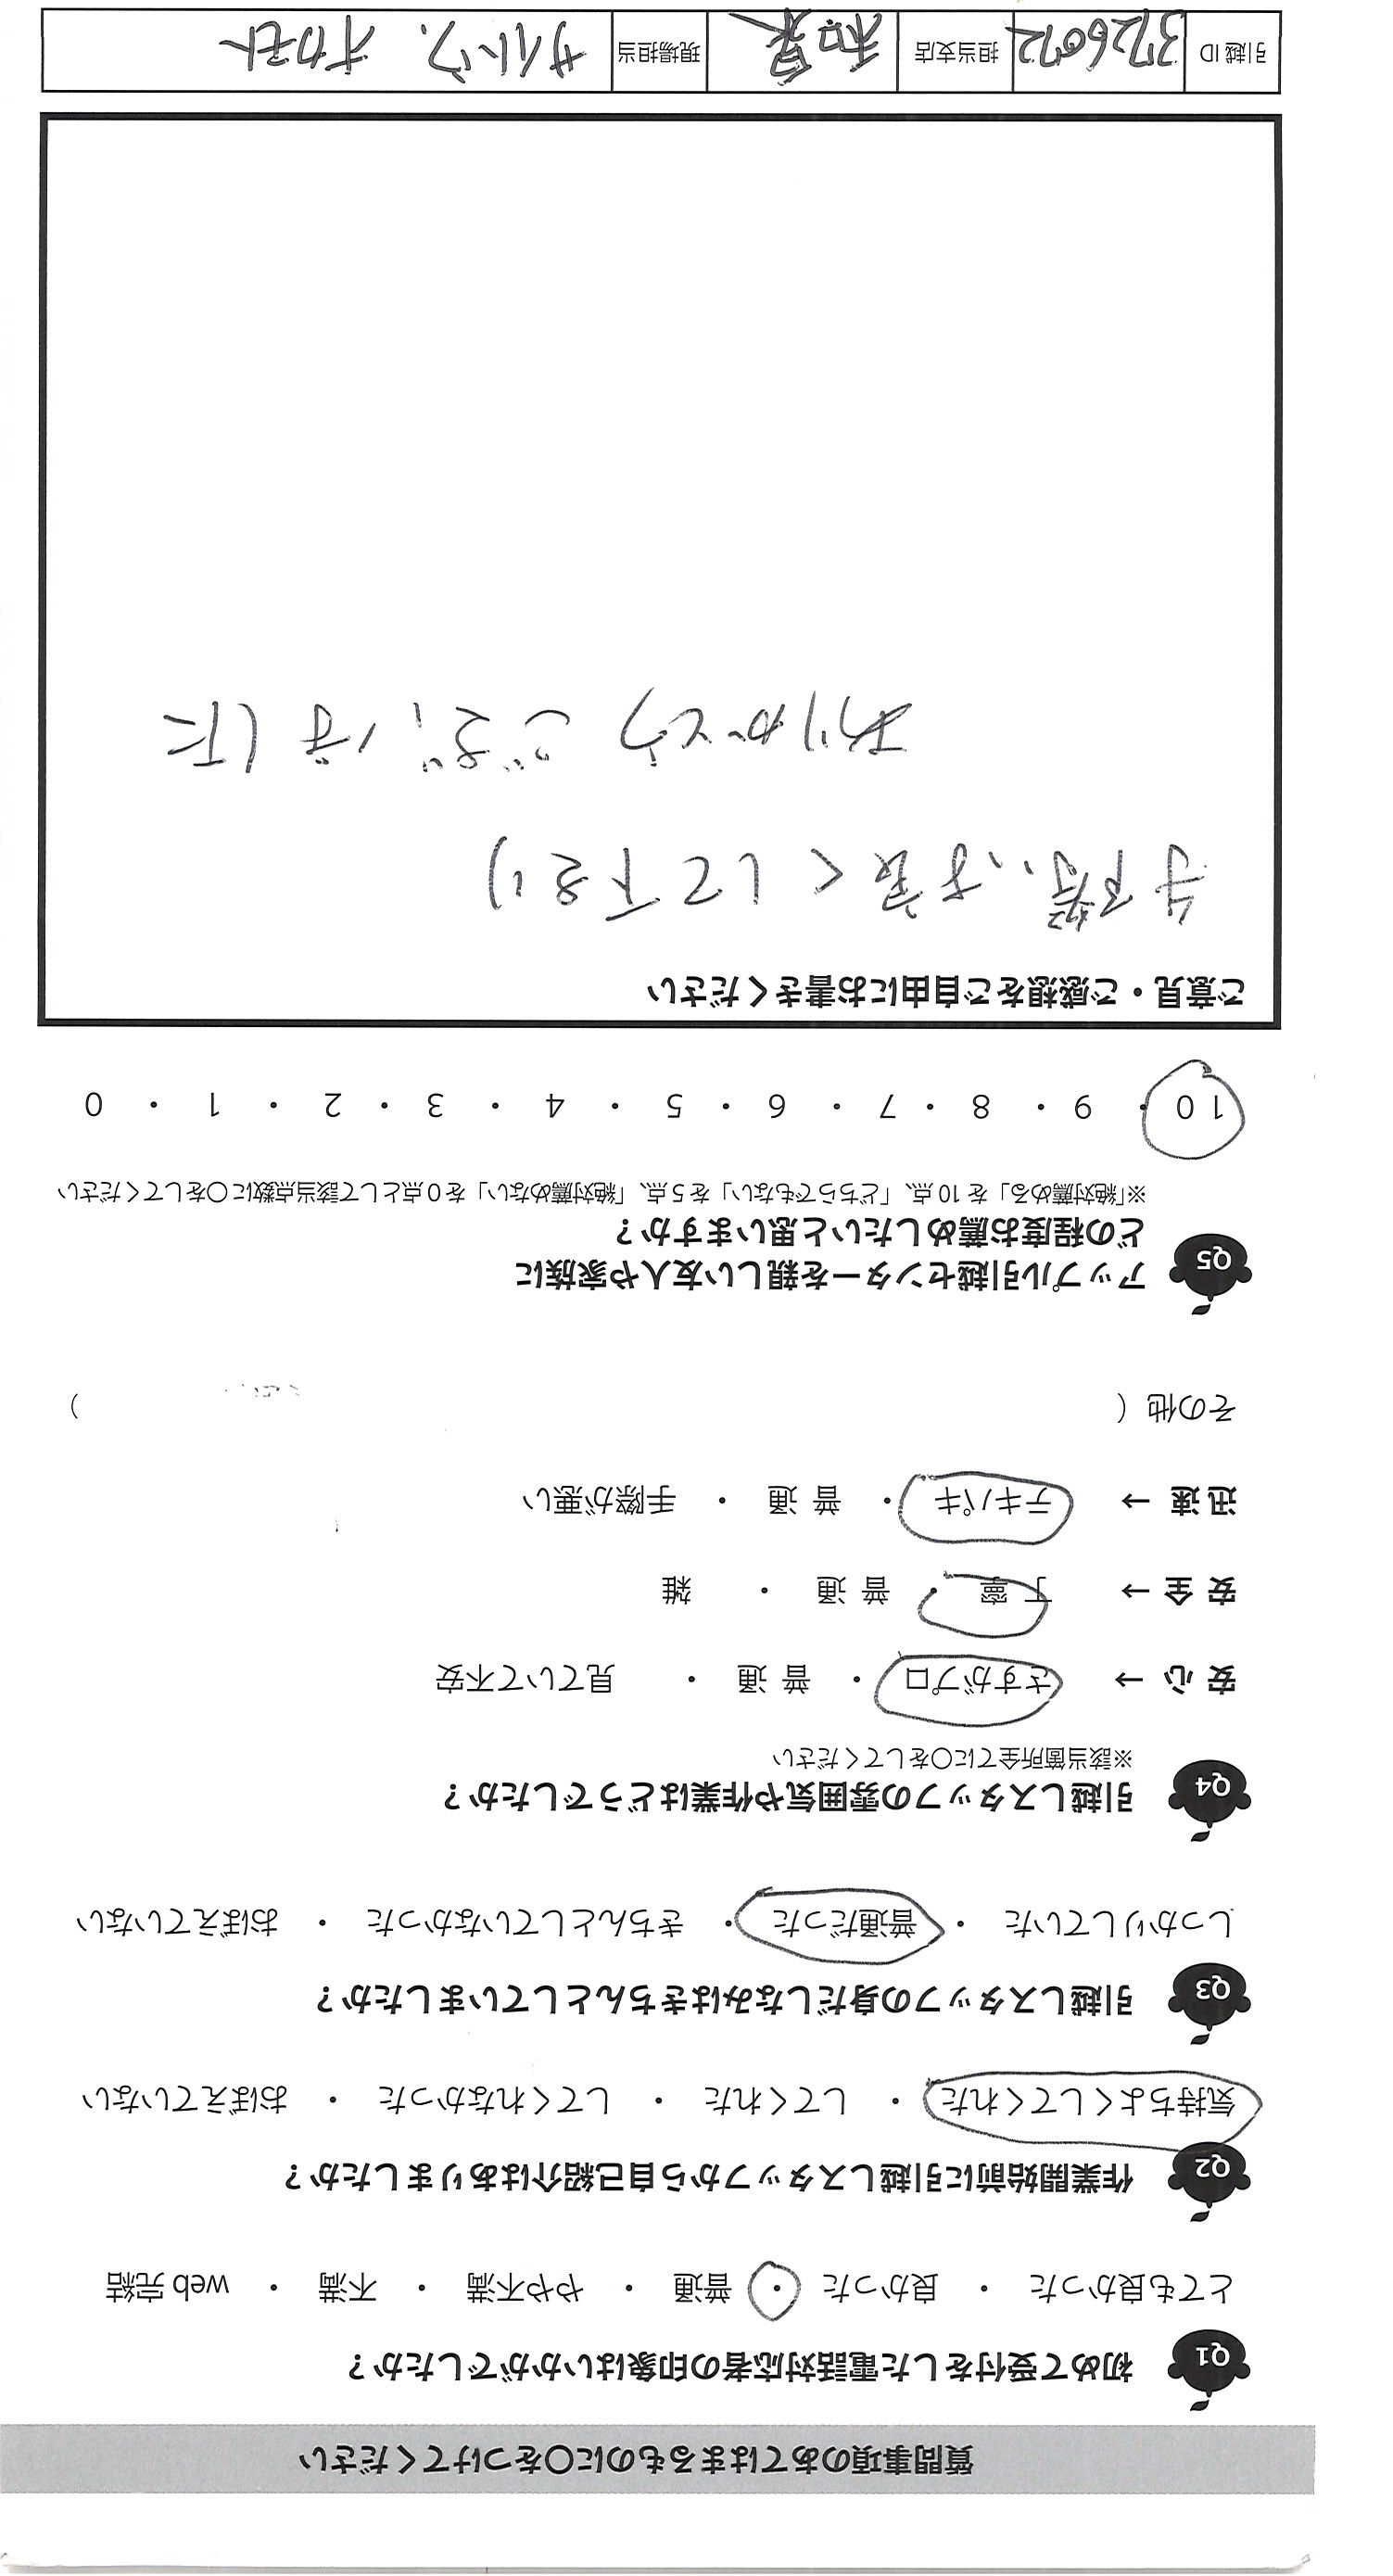 質問事項のあてはまるものに〇をつけてください
Q1 初めて受付をした電話対応者の印象はいかがでしたか？
とても良かった ・ 良かった ・ 普通 ・ やや不満 ・ 不満 ・ web 完結
Q2 作業開始前に引越しスタッフから自己紹介はありましたか？
気持ちよくしてくれた ・ してくれた ・ してくれなかった ・ おぼえていない
Q3 引越しスタッフの身だしなみはきちんとしていましたか？
しっかりしていた ・ 普通だった ・ きちんとしていなかった ・ おぼえていない
Q4 引越しスタッフの雰囲気や作業はどうでしたか？
※該当箇所全てに〇をしてください
安心 → さすがプロ ・ 普通 ・ 見ていて不安
安全 → 丁寧 ・ 普通 ・ 雑
迅速 → テキパキ ・ 普通 ・ 手際が悪い
その他（ ）
Q5 アップル引越センターを親しい友人や家族に
どの程度お薦めしたいと思いますか？
※「絶対薦める」を 10 点、「どちらでもない」を 5 点、「絶対薦めない」を 0 点として該当点数に〇をしてください
10 ・ 9 ・ 8 ・ 7 ・ 6 ・ 5 ・ 4 ・ 3 ・ 2 ・ 1 ・ 0
ご意見・ご感想をご自由にお書きください
手際、よくして下さり
ありがとうございました
引越 ID 3726072 担当支店 和泉 現場担当 サイトウ、オカモト